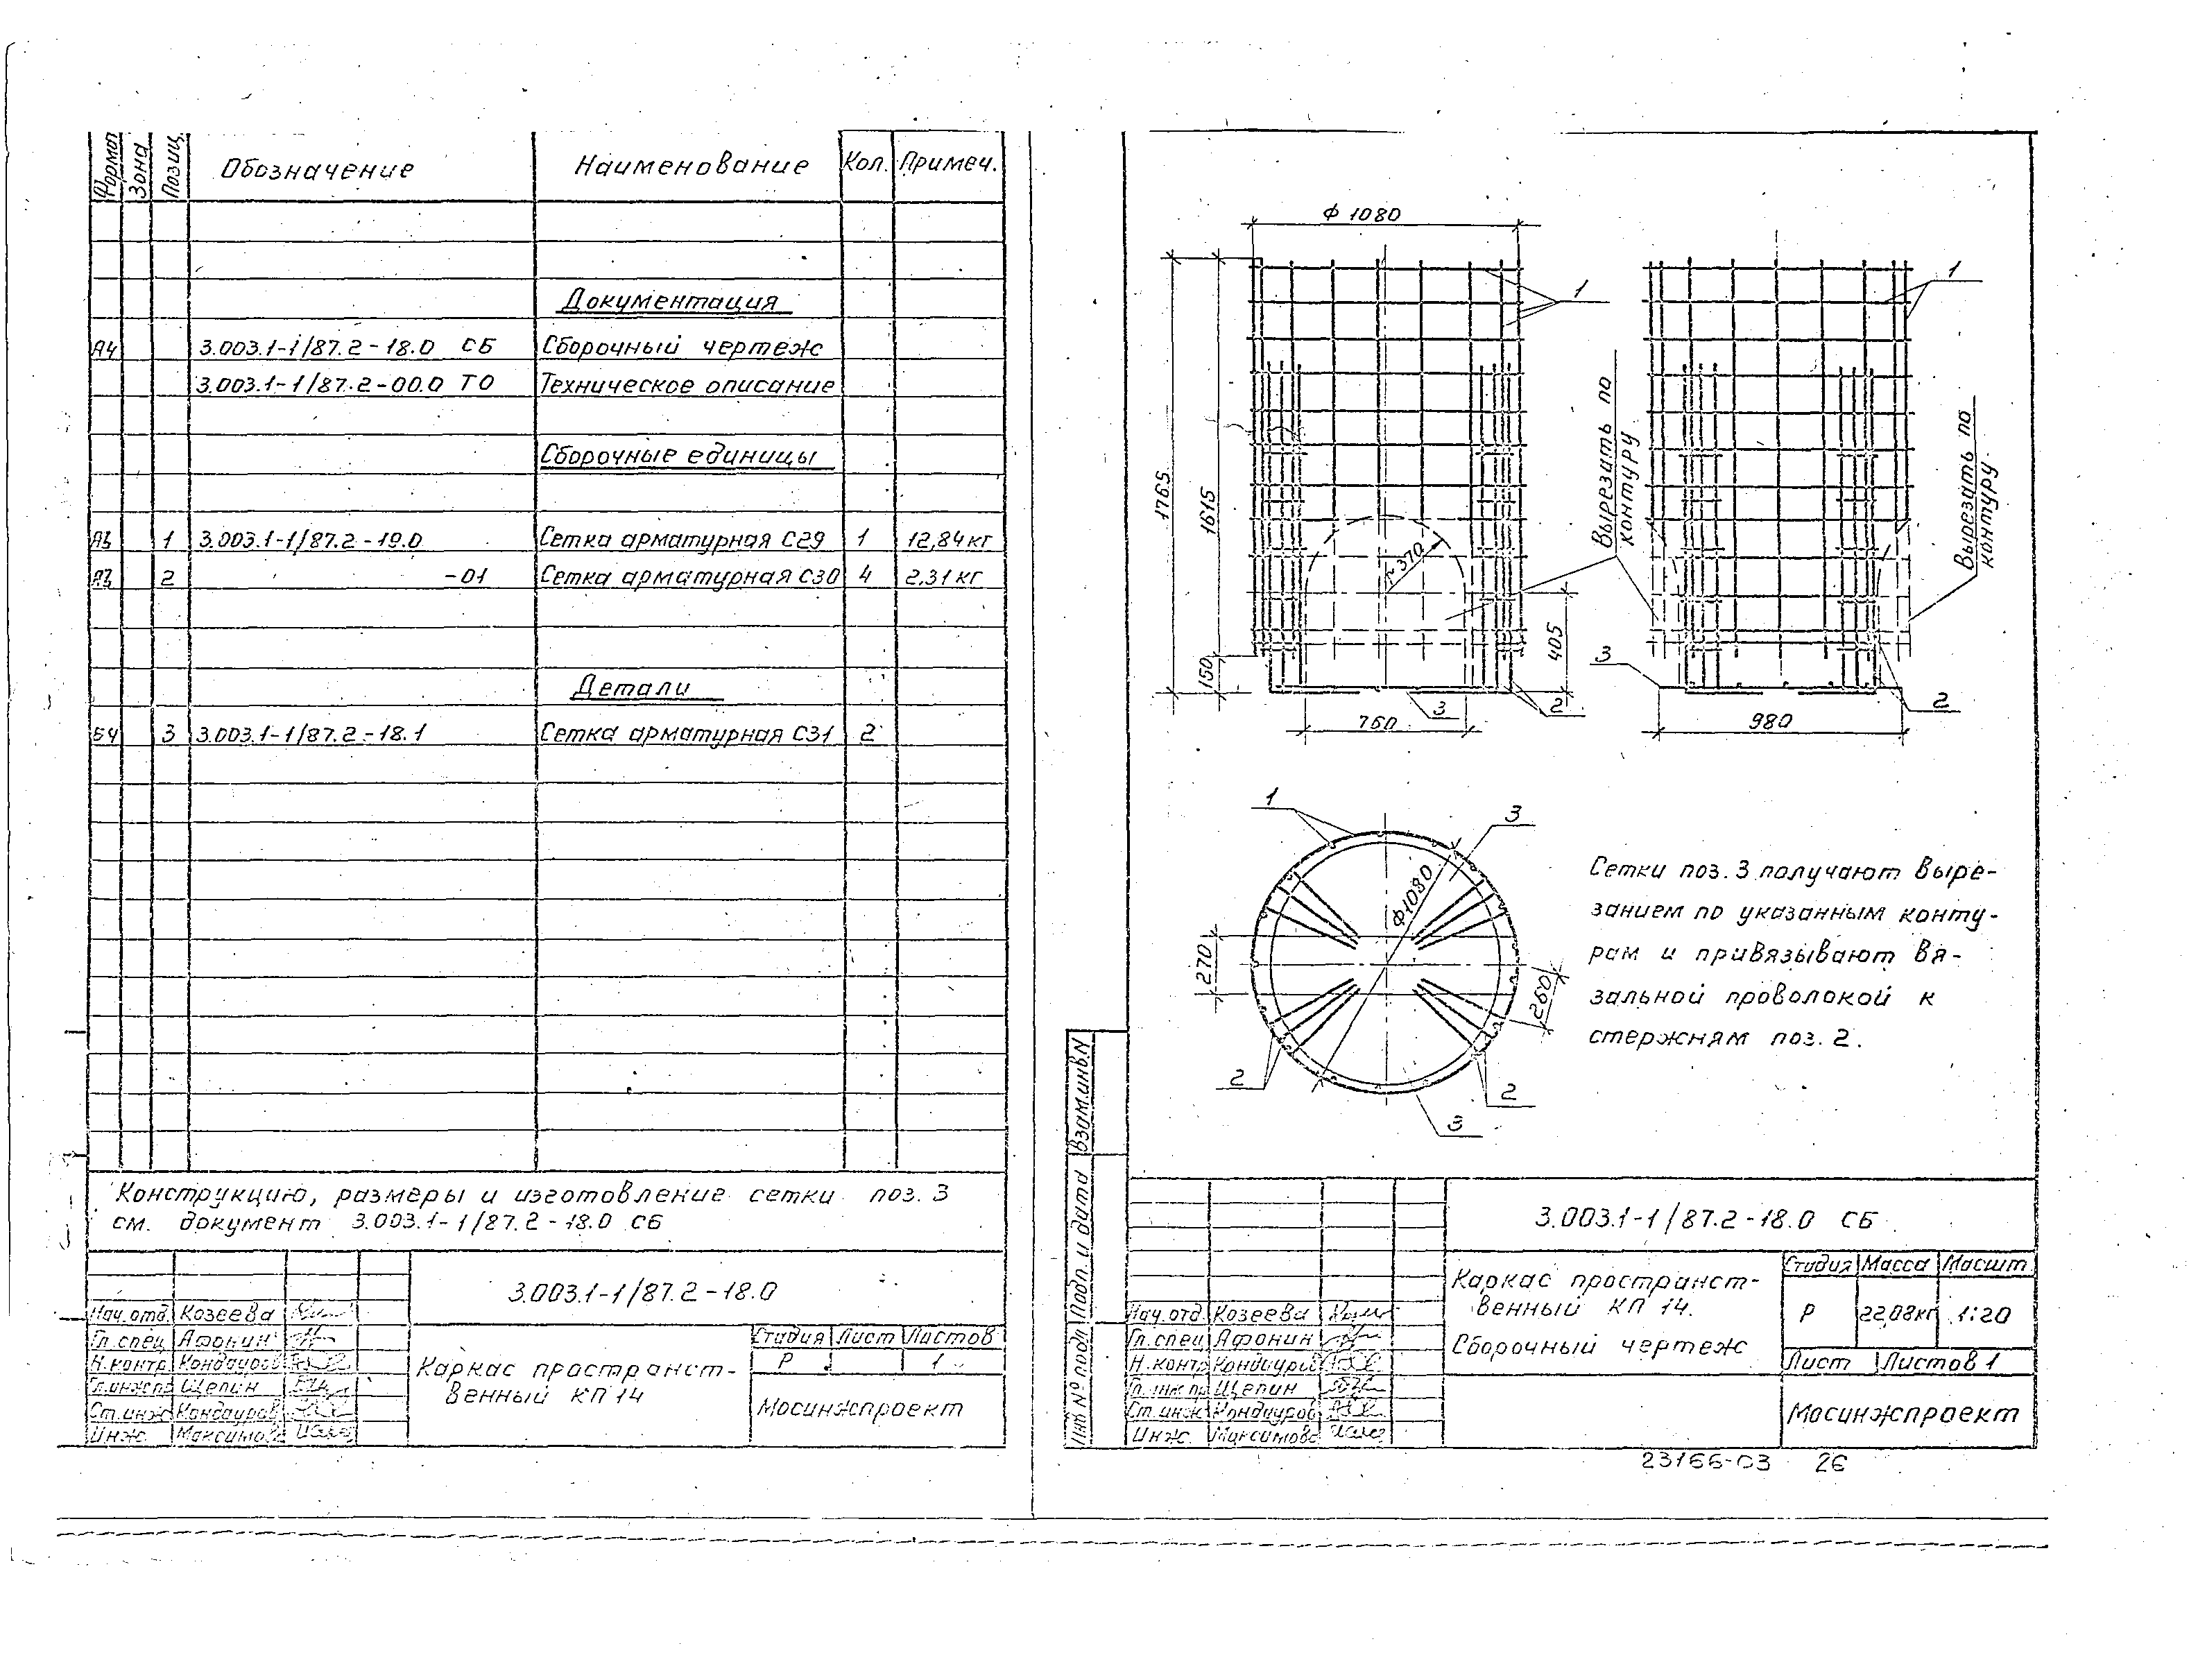 Формат Зона Позиц. Обозначение Наименование Кол. Примеч.
Документация
А4 3.003.1-1/87.2-18.0 СБ Сборочный чертеж
3.003.1-1/87.2-00.0 ТО Техническое описание
Сборочные единицы
1 3.003.1-1/87.2-19.0 Сетка арматурная С29 1 12,84кг
2 -01 Сетка арматурная С30 4 2,31кг
Детали
БЧ 3 3.003.1-1/87.2-18.1 Сетка арматурная С31 2
Конструкцию, размеры и изготовление сетки поз. 3
см. документ 3.003.1-1/87.2-18.0 СБ
3.003.1-1/87.2-18.0
Нач.отд. Козеева
Гл.спец Афонин
Н.контр. Кондауров
Гл.инж.пр Щепин
Ст.инж Кондауров
Инж. Максимова
Каркас пространст-
венный КП 14
Стадия Лист Листов
Р 1
Мосинжпроект
ф 1080
1
1
1765
1615
150
Вырезать по
контуру
Вырезать по
контуру
r~370
405
3
2
3
2
760
980
1
3
ф1080
270
260
2
2
3
Сетки поз. 3 получают выре-
занием по указанным конту-
рам и привязывают вя-
зальной проволокой к
стержням поз. 2.
Взам.инв.N
Подп. и дата
Инв № подл
3.003.1-1/87.2-18.0 СБ
Каркас пространст-
венный КП 14.
Сборочный чертеж
Стадия Масса Масшт.
Р 22,08кг 1:20
Лист Листов 1
Мосинжпроект
Нач.отд. Козеева
Гл.спец Афонин
Н.контр Кондауров
Гл.инж пр Щепин
Ст.инж Кондауров
Инж. Максимова
23166-03 26